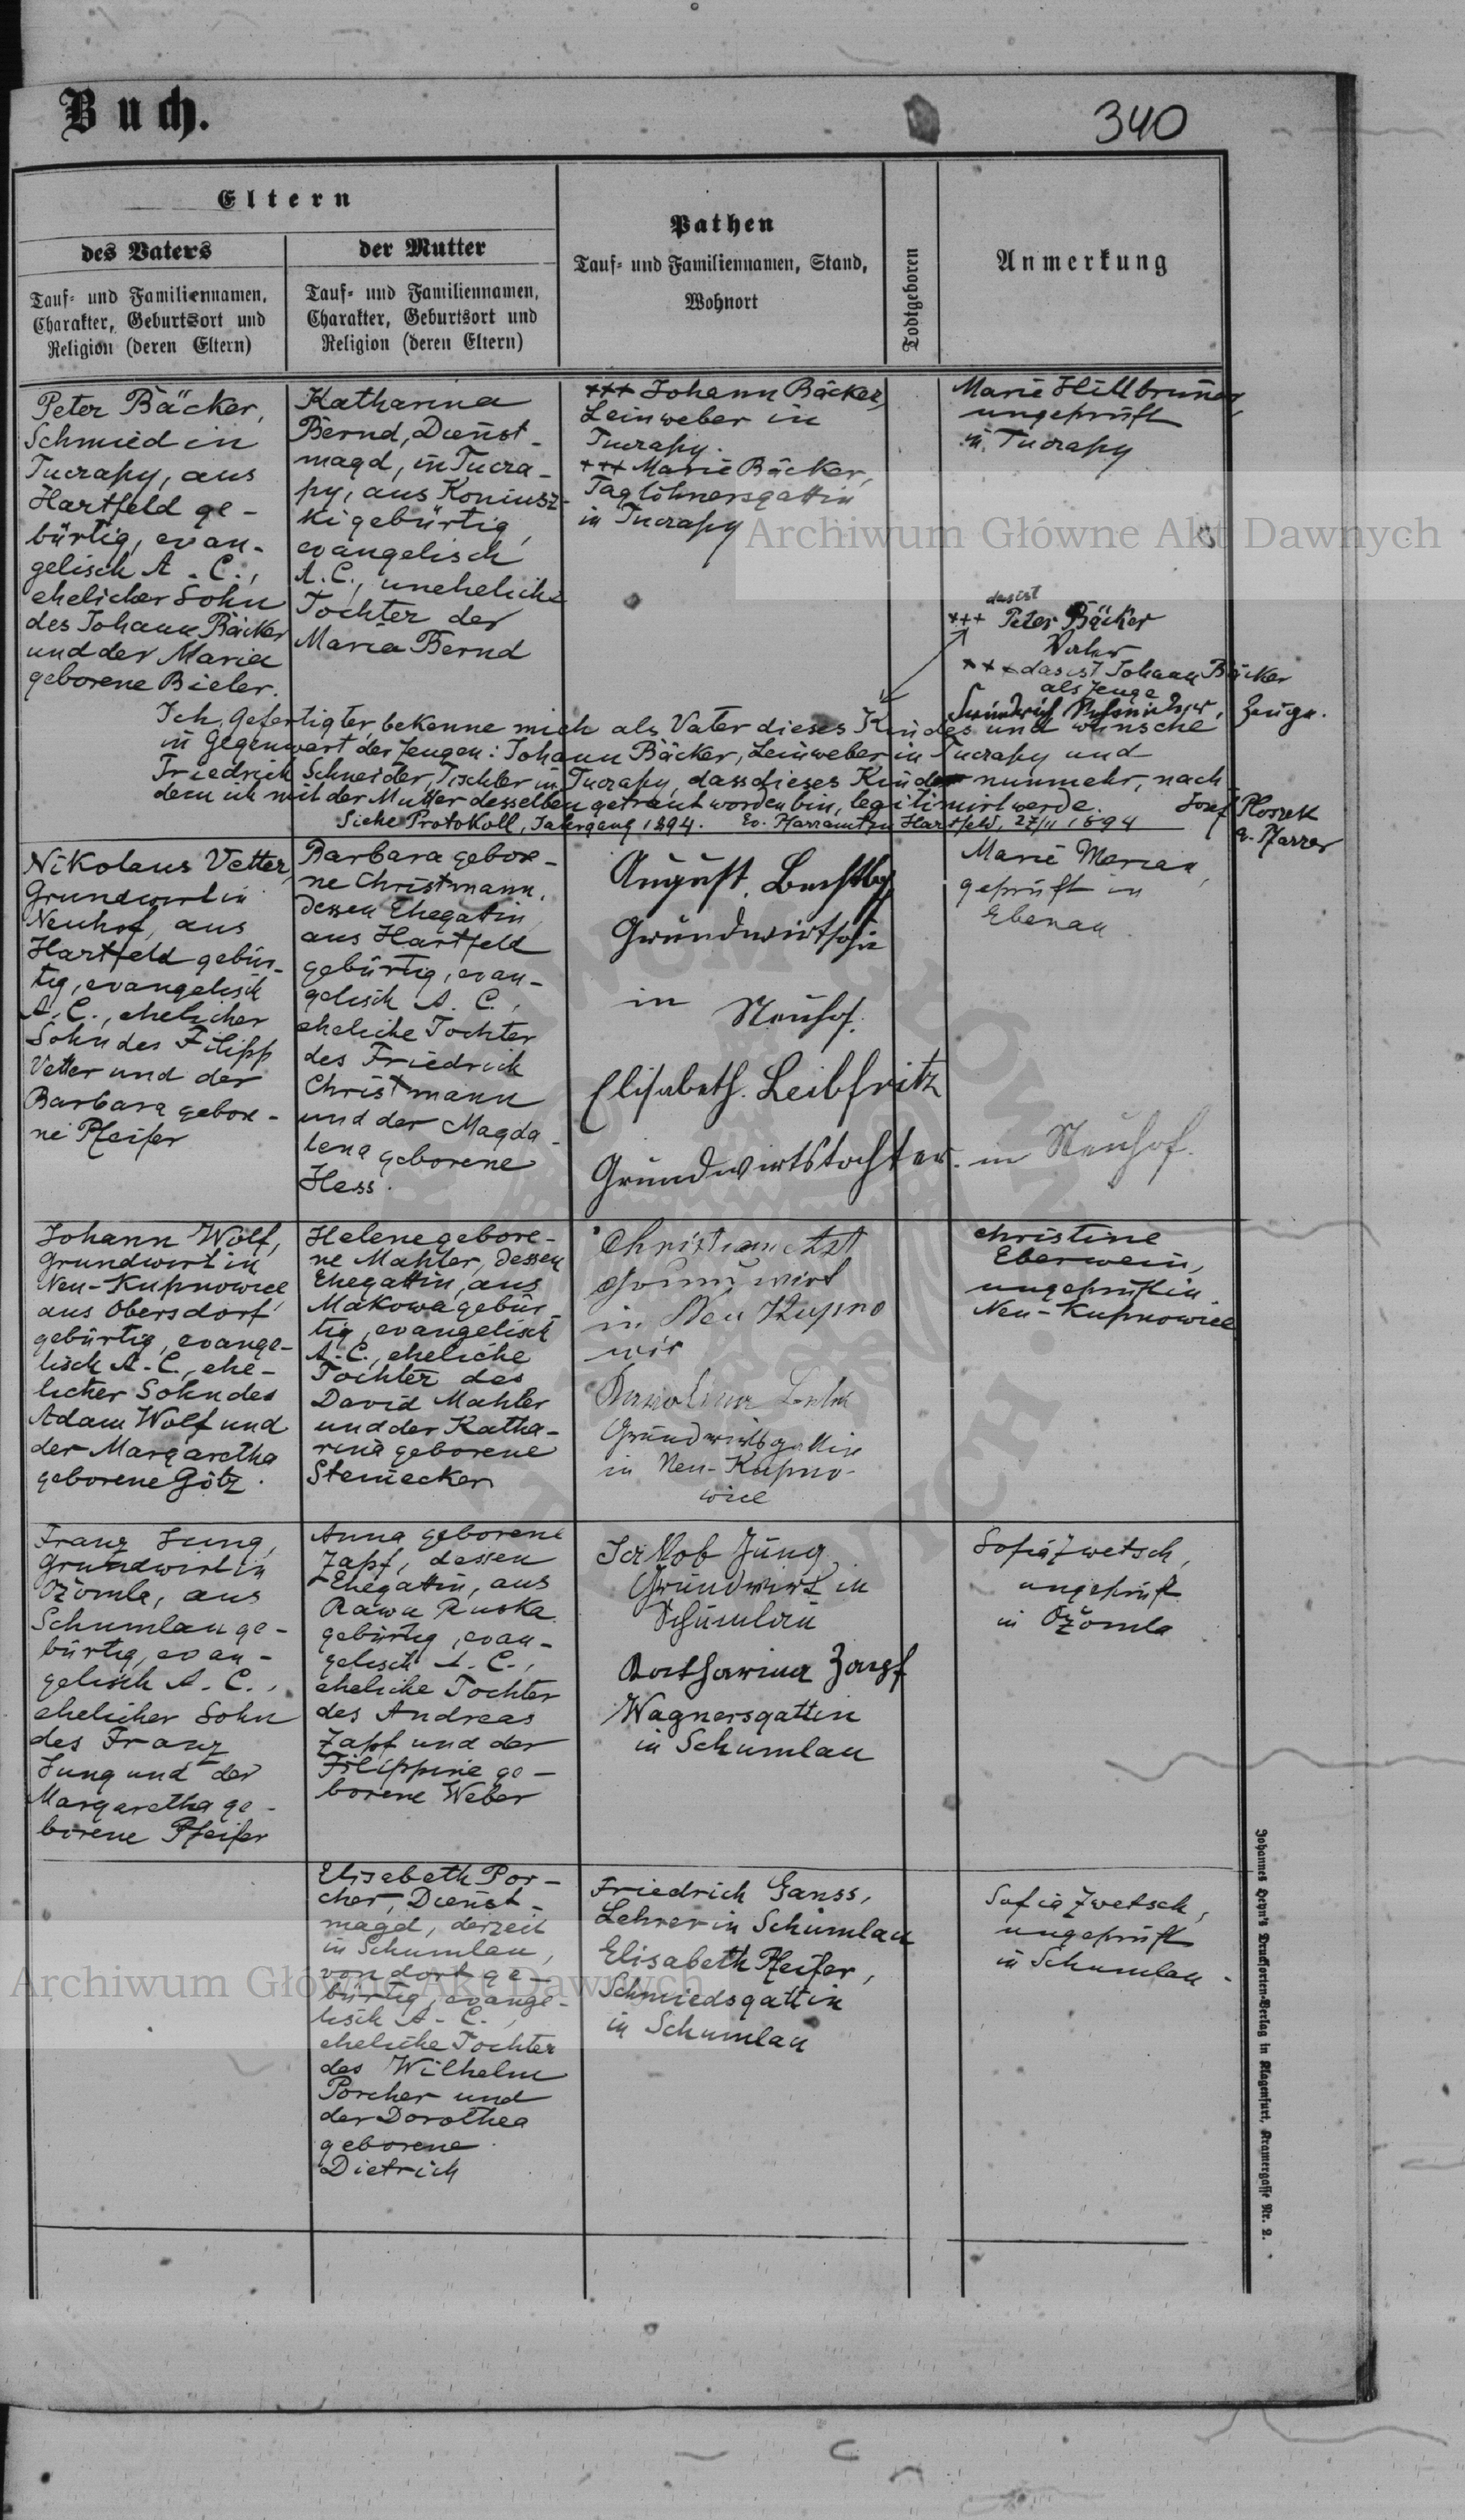 Buch.
340
Eltern
des Vaters
der Mutter
Pathen
Tauf- und Familiennamen, Stand,
Wohnort
Todtgeboren
Anmerkung
Tauf- und Familiennamen,
Charakter, Geburtsort und
Religion (deren Eltern)
Tauf- und Familiennamen,
Charakter, Geburtsort und
Religion (deren Eltern)
Peter Bäcker,
Schmied in
Tucrapy, aus
Hartfeld ge-
bürtig, evan-
gelisch A. C.,
ehelicher Sohn
des Johann Bäcker
und der Maria
geborene Bieler.
Katharina
Bernd, Dienst-
magd, in Tucra-
py, aus Koniusz-
ki gebürtig,
evangelisch
A. C., uneheliche
Tochter der
Maria Bernd
+++ Johann Bäcker,
Leinweber in
Tucrapy.
+++ Marie Bäcker,
Taglöhnersgattin
in Tucrapy
Marie Hillbruner,
ungeprüft
in Tucrapy
das ist
+++ Peter Bäcker
Vater
+++ das ist Johann Bäcker
als Zeuge
Zeuge.
Ich, Gefertigter, bekenne mich als Vater dieses Kindes und wünsche
in Gegenwart der Zeugen: Johann Bäcker, Leinweber in Tucrapy und
Friedrich Schneider, Tischler in Tucrapy, dass dieses Kind nunmehr, nach
dem ich mit der Mutter desselben getraut worden bin, legitimirt werde.
Siehe Protokoll, Jahrgang 1894. Ev. Pfarramt zu Hartfeld, 27/11 1894
Josef Ploszek
Pfarrer
Nikolaus Vetter,
Grundwirt in
Neuhof, aus
Hartfeld gebür-
tig, evangelisch
A. C., ehelicher
Sohn des Filipp
Vetter und der
Barbara gebore-
ne Pfeifer
Barbara gebore-
ne Christmann,
dessen Ehegatin,
aus Hartfeld
gebürtig, evan-
gelisch A. C.,
eheliche Tochter
des Friedrich
Christmann
und der Magda-
lena geborene
Hess.
August
Grundwirtsohn
in Neuhof.
Elisabeth. Leibfritz
Grundwirtstochter. in Neuhof.
Marie Merian,
geprüft in
Ebenau.
Johann Wolf,
Grundwirt in
Neu-Kupnowice,
aus Obersdorf
gebürtig, evange-
lisch A. C., ehe-
licher Sohn des
Adam Wolf und
der Margaretha
geborene Götz.
Helene gebore-
ne Mahler, dessen
Ehegattin, aus
Makowa gebür-
tig, evangelisch
A. C., eheliche
Tochter des
David Mahler
und der Katha-
rina geborene
Steinecker
Christian
Grunwirt
in Neu Kupno
wic
Karolina
Grundwirtsgattin
in Neu-Kupno-
wice
Christine
Eberwein,
ungeprüft in
Neu-Kupnowice
Franz Jung,
Grundwirt in
Ożomla, aus
Schumlau ge-
bürtig, evan-
gelisch A. C.,
ehelicher Sohn
des Franz
Jung und der
Margaretha ge-
borene Pfeifer
Anna geborene
Zapf, dessen
Ehegattin, aus
Rawa Ruska
gebürtig, evan-
gelisch A. C.,
eheliche Tochter
des Andreas
Zapf und der
Filippine ge-
borene Weber
Jakob Jung
Grundwirt in
Schumlau
Katharina Zapf
Wagnersgattin
in Schumlau
Sofia Zwetsch,
ungeprüft
in Ożomla
Elisabeth Por-
cher, Dienst-
magd, derzeit
in Schumlau,
von dort ge-
bürtig, evange-
lisch A. C.,
eheliche Tochter
des Wilhelm
Porcher und
der Dorothea
geborene
Dietrich
Friedrich Ganss,
Lehrer in Schumlau
Elisabeth Pfeifer,
Schmiedsgattin
in Schumlau
Sofia Zwetsch,
ungeprüft
in Schumlau.
Johannes Heyn's Drucksorten-Verlag in Klagenfurt, Kramergasse Nr. 2.
Archiwum Główne Akt Dawnych
Archiwum Główne Akt Dawnych